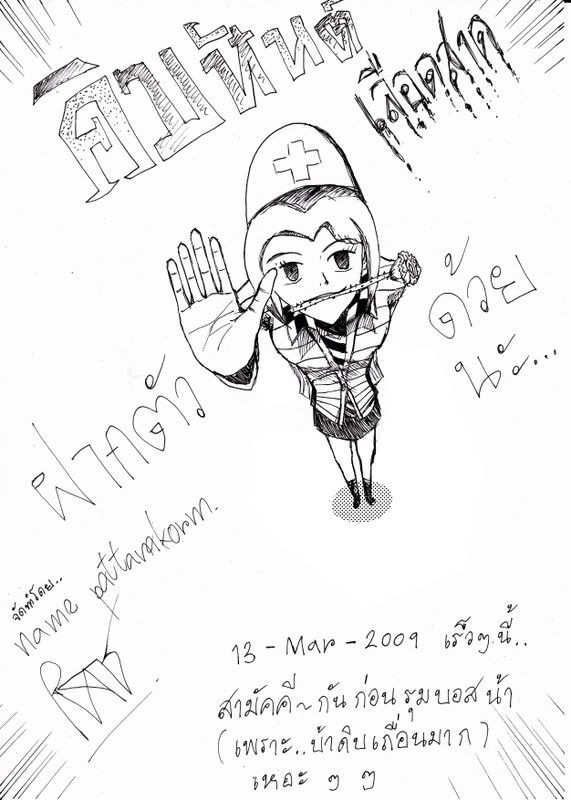 ดิบเถื่อน
เลือดสาด
ฝากตัว
ด้วย
นะ...
จัดทำโดย..
name pattarakorm.
13 - Mar - 2009 เร็วๆนี้..
สามัคคี~กันก่อนรุมบอสน้า
(เพราะ..บ้าดิบเถื่อนมาก)
เหอะ ๆ ๆ